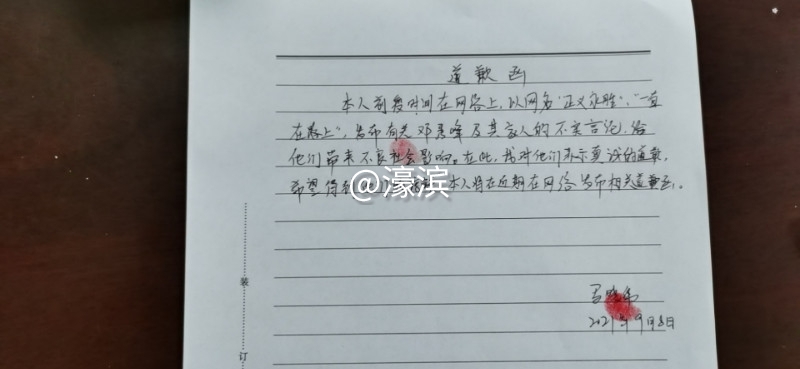 道歉函
本人前段时间在网络上，以网名“正义永胜”、“一直
在路上”，发布有关邓秀峰及其家人的不实言论，给
他们带来不良社会影响。在此，我对他们表示真诚的道歉，
希望得到他们 本人将在近期在网络发布相关道歉函。
@濠滨
2021年9月8日
装
订